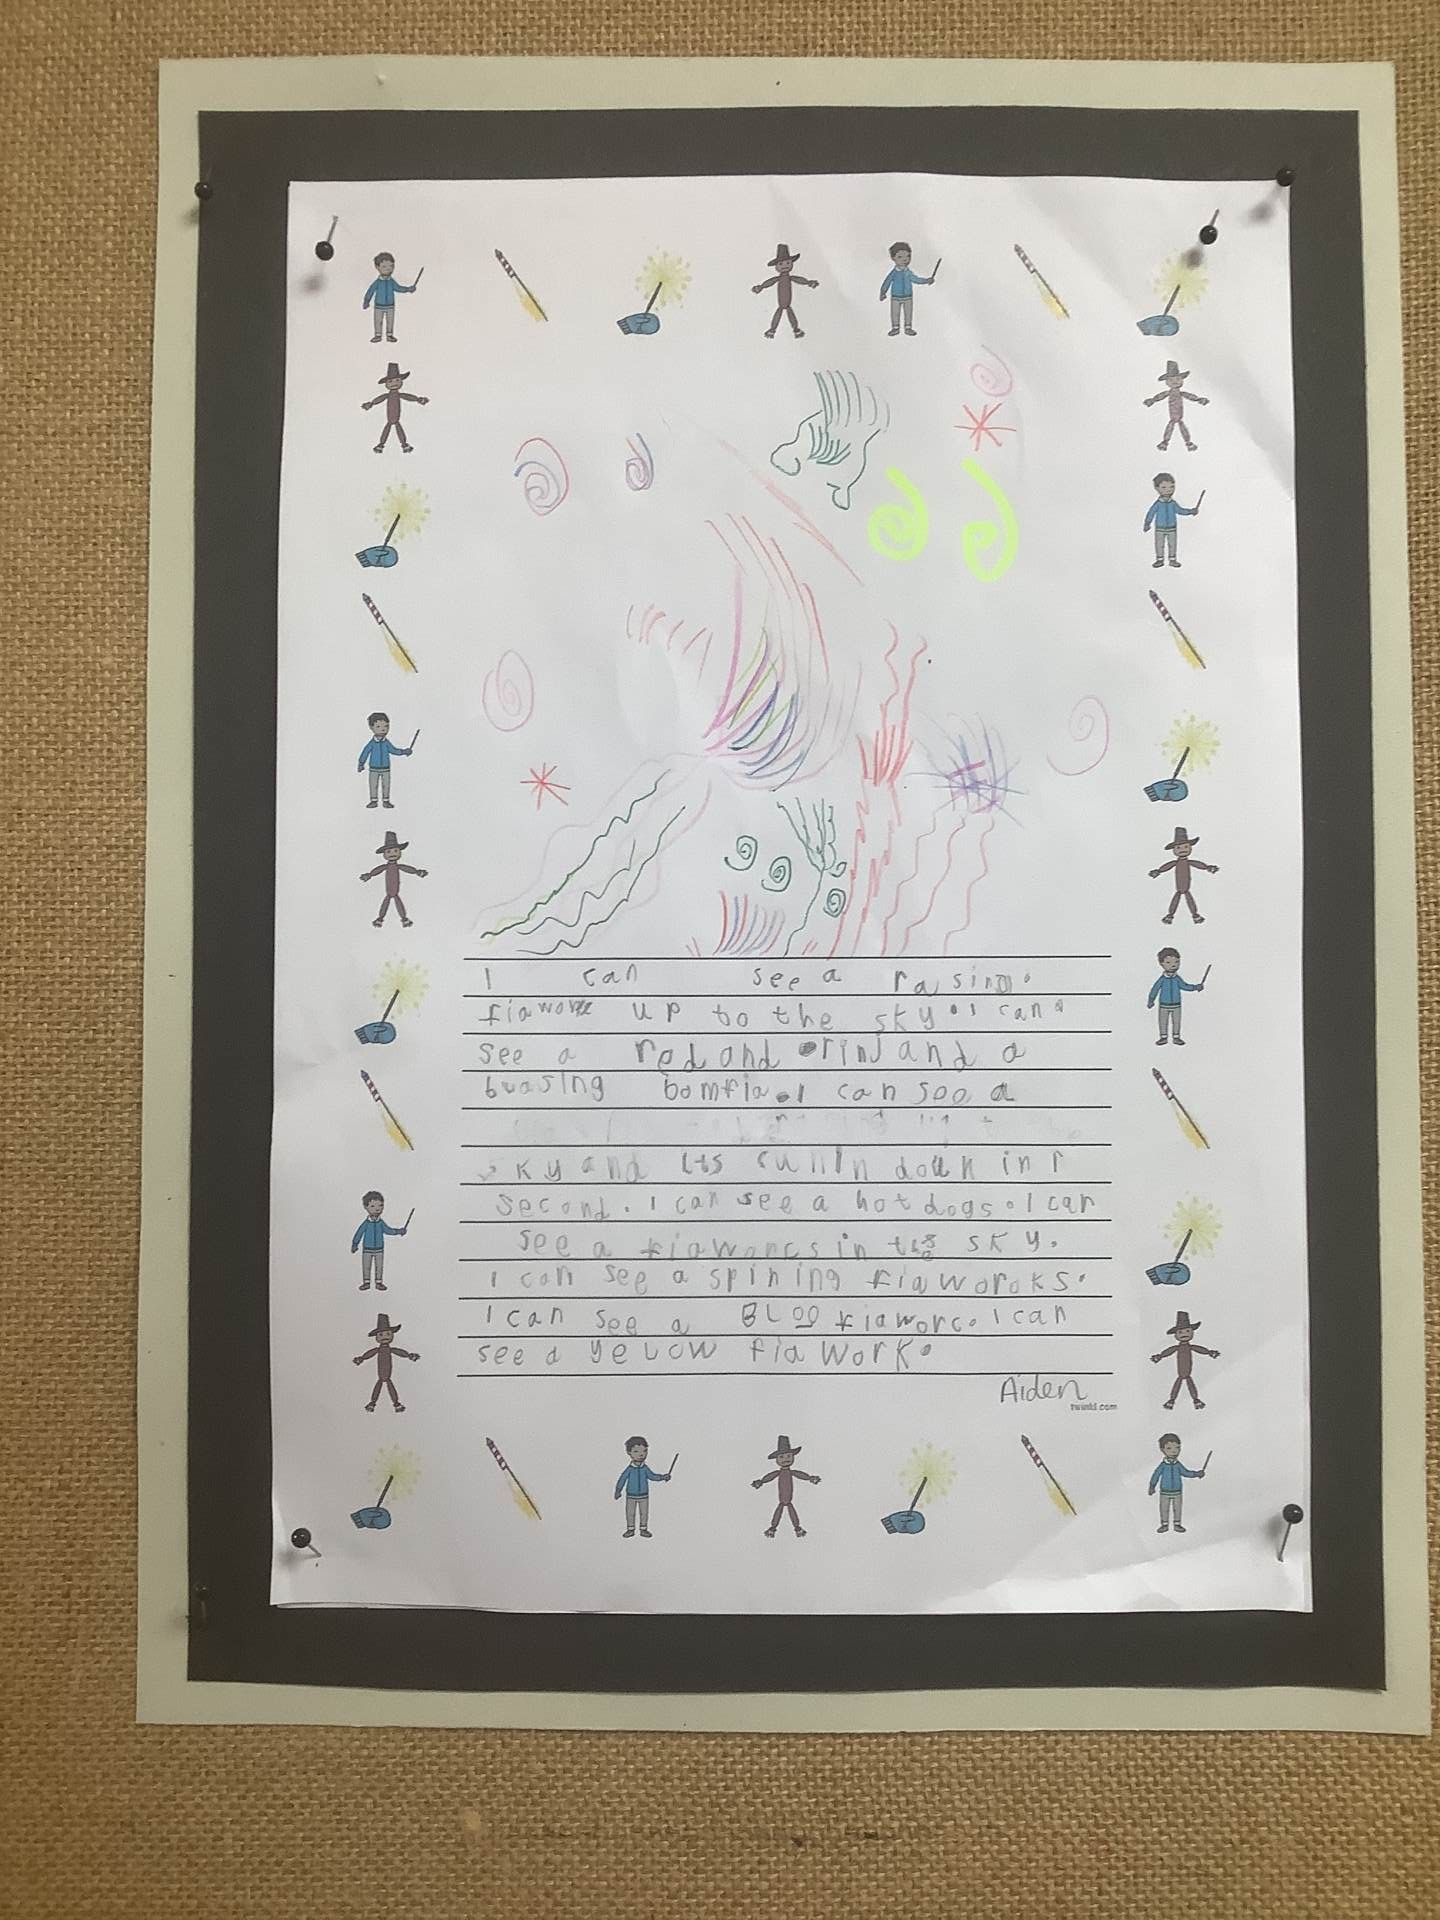 I can see a rasing.
fiawork up to the sky. I can
see a red and orinj and a
buasing bomfia. I can see a
sky and its cumin down in 1
second. I can see a hot dogs. I can
see a fiaworcs in the sky.
I can see a spining fiaworoks.
I can see a BLoo fiaworc. I can
see a yelow fiawork.
Aiden
twinkl.com